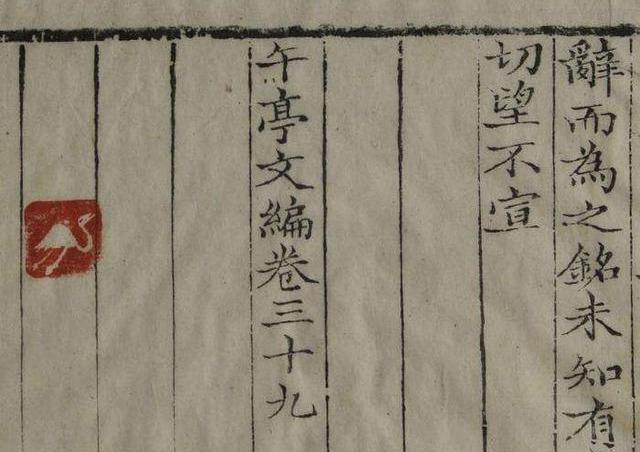 辭而為之銘未知有
切望不宣
午亭文編卷三十九